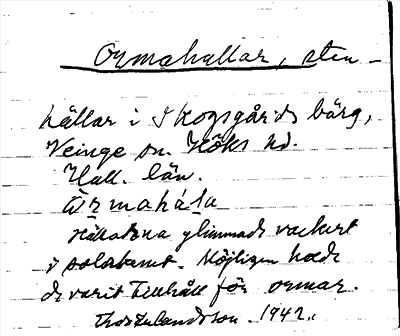 Ormahallar, sten-
hällar i Skogsgårds bärg,
Veinge sn. Höks hd.
Hall. län.
Ormahála
Hällarna glimmade vackert
i solskenet. Möjligen hade
de varit tillhåll för ormar.
1942.